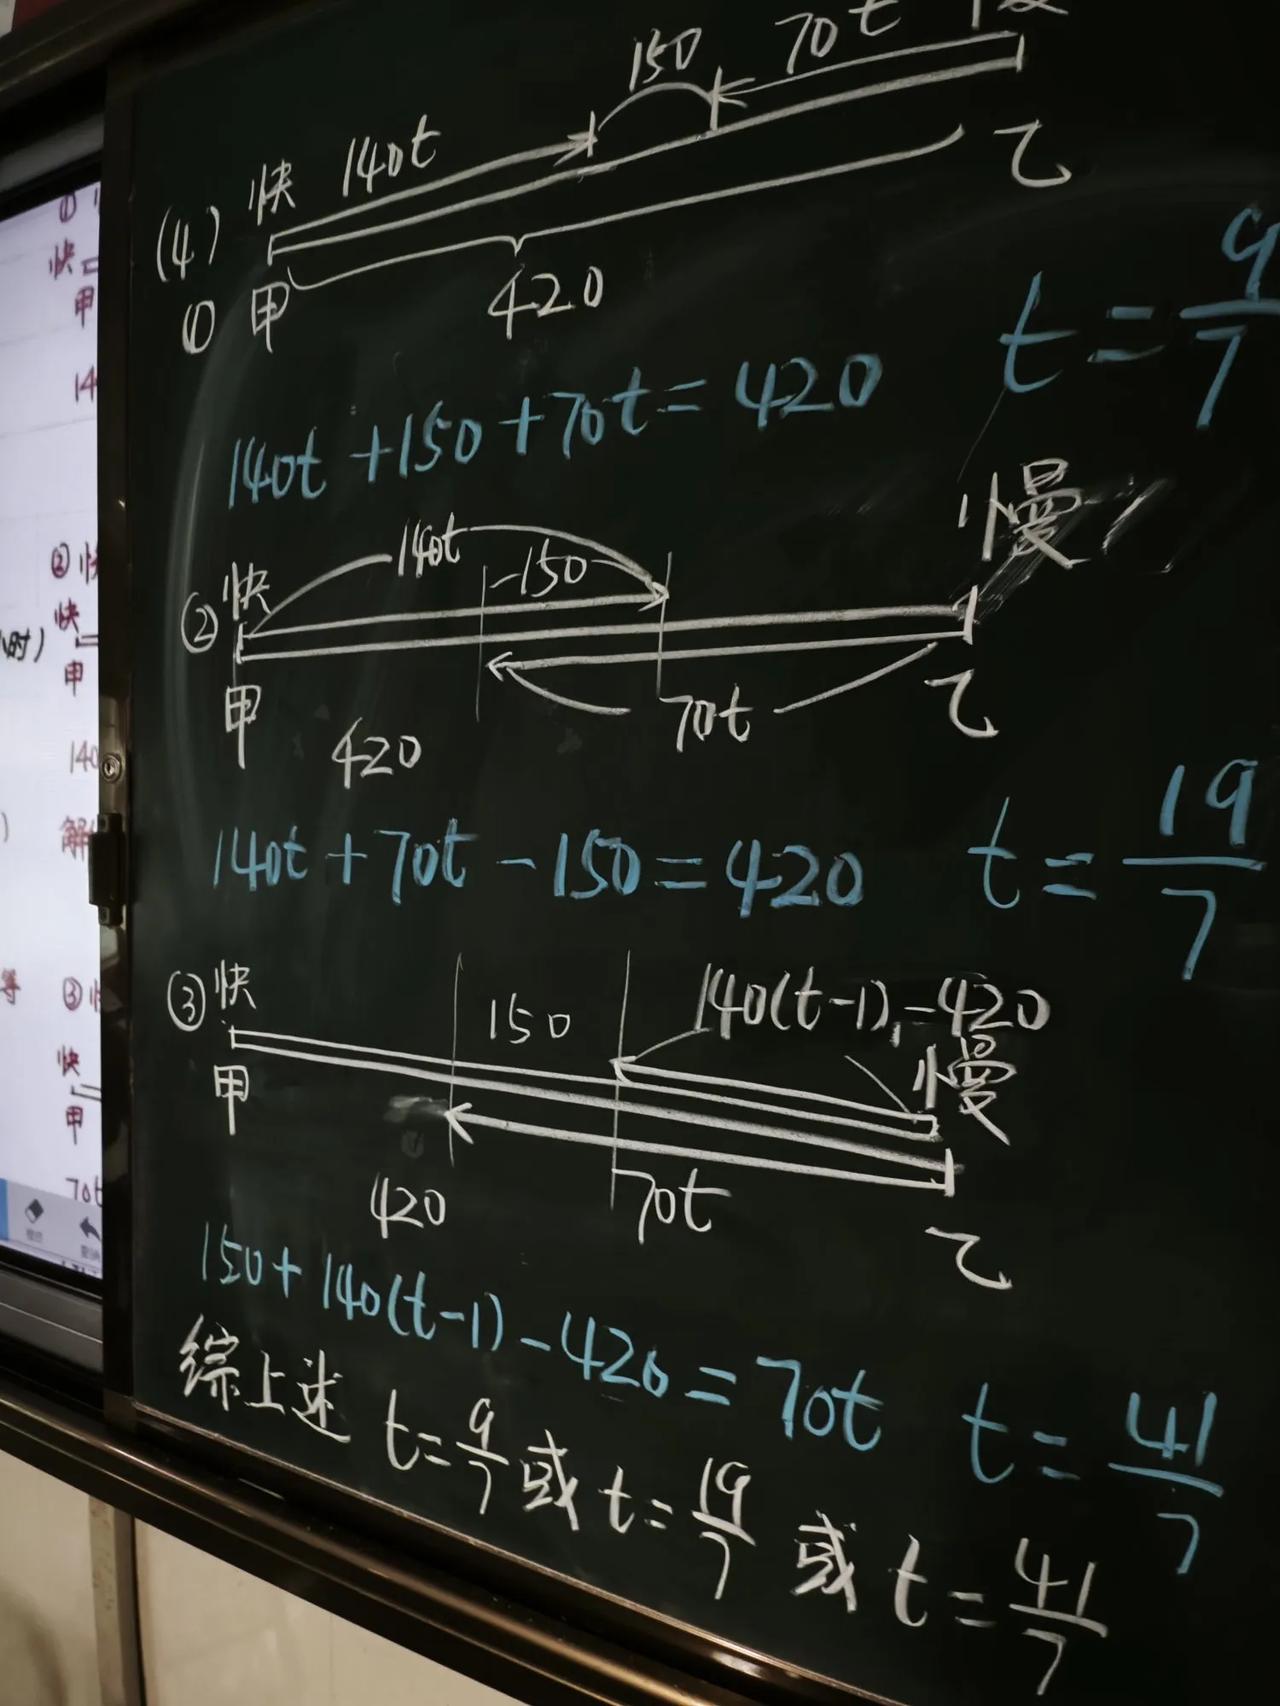 150 70t
快 140t
(4)
① 甲 420 乙
t = 9/7
140t + 150 + 70t = 420
慢
② 快 140t 150
甲 70t 乙
420
140t + 70t - 150 = 420 t = 19/7
③ 快 150 140(t-1) - 420
甲 慢
420 70t 乙
150 + 140(t-1) - 420 = 70t t = 41/7
综上述 t = 9/7 或 t = 19/7 或 t = 41/7
①
快
甲
14
②
快
小时)
甲
140
解
等
③
快
甲
70t